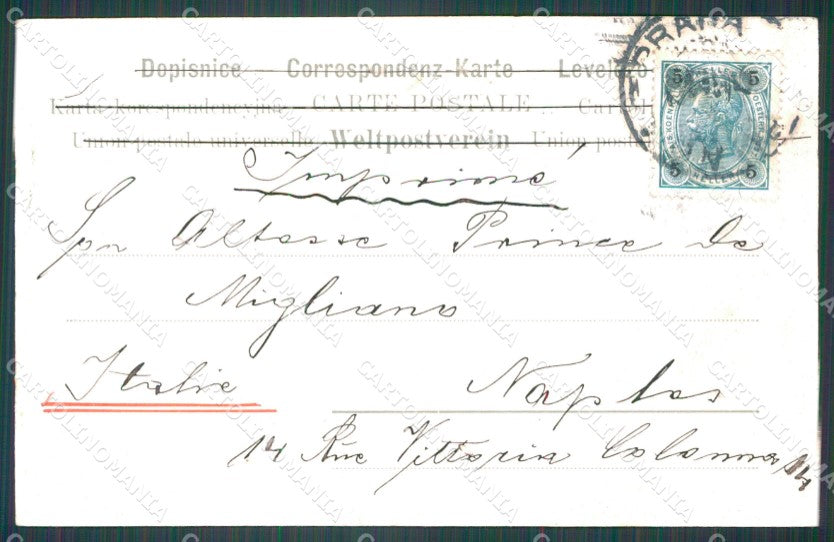 PRAHA
Dopisnice — Correspondenz-Karte — Levelezo
Karta korespondencyjna — CARTE POSTALE —
Union postale universelle Weltpostverein Union post
5 5
5 5
Imprimé
Son Altesse Prince De
Migliano
Italie Naples
14 Rue Vittoria Colonna 14
CARTOLINOMANIA